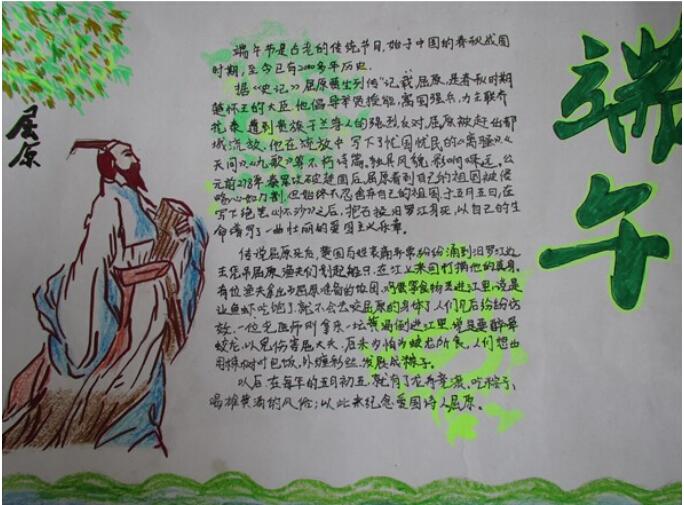 端午
屈原
端午节是古老的传统节日，始于中国的春秋战国
时期，至今已有2000多年历史．
据《史记》屈原贾生列传"记载，屈原，是春秋时期
楚怀王的大臣他倡导举贤授能，富国强兵，力主联齐
抗秦，遭到贵族子兰等人的强烈反对，屈原被赶出都
城流放，他在流放中，写下了忧国忧民的《离骚》《
天问》《九歌》等不朽诗篇．独具风貌，影响深远，公
元前278年，秦军攻破楚国后，屈原看到自己的祖国被侵
略心如刀割，但始终不忍舍弃自己的祖国，于五月五日，在
写下绝笔《怀沙》之后，抱石投汨罗江身死，以自己的生
命谱写了一曲壮丽的爱国主义乐章。
传说屈原死后，楚国百姓哀痛异常纷纷涌到汨罗江边
去凭吊屈原，渔夫们划起船只，在江上来回打捞他的真身，
有位渔夫拿出为屈原准备的饭团，鸡蛋等食物丢进江里，说是
让鱼虾吃饱了，就不会去咬屈原的身体了人们见后纷纷仿
效，一位老医师则拿来一坛黄酒倒进江里，说是要醉晕
蛟龙，以免伤害屈大夫，后来为怕为蛟龙所食，人们想出
用楝树叶包饭，外缠彩丝，发展成粽子。
以后，在每年的五月初五，就有了龙舟竞渡，吃粽子，
喝雄黄酒的风俗；以此来纪念爱国诗人屈原。